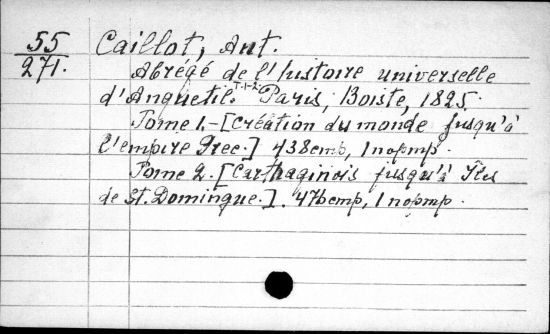 55
271.
Caillot, Ant.
Abrégé de l'histoire universelle
d'Anquetil. T.1-2. Paris, Boiste, 1825.
Tome 1.-[Création du monde jusqu'à
l'empire Grec.] 438 стр, 1 портр.
Tome 2. [Carthaginois jusqu'à Iles
de St. Domingue.]. 476 стр, 1 портр.